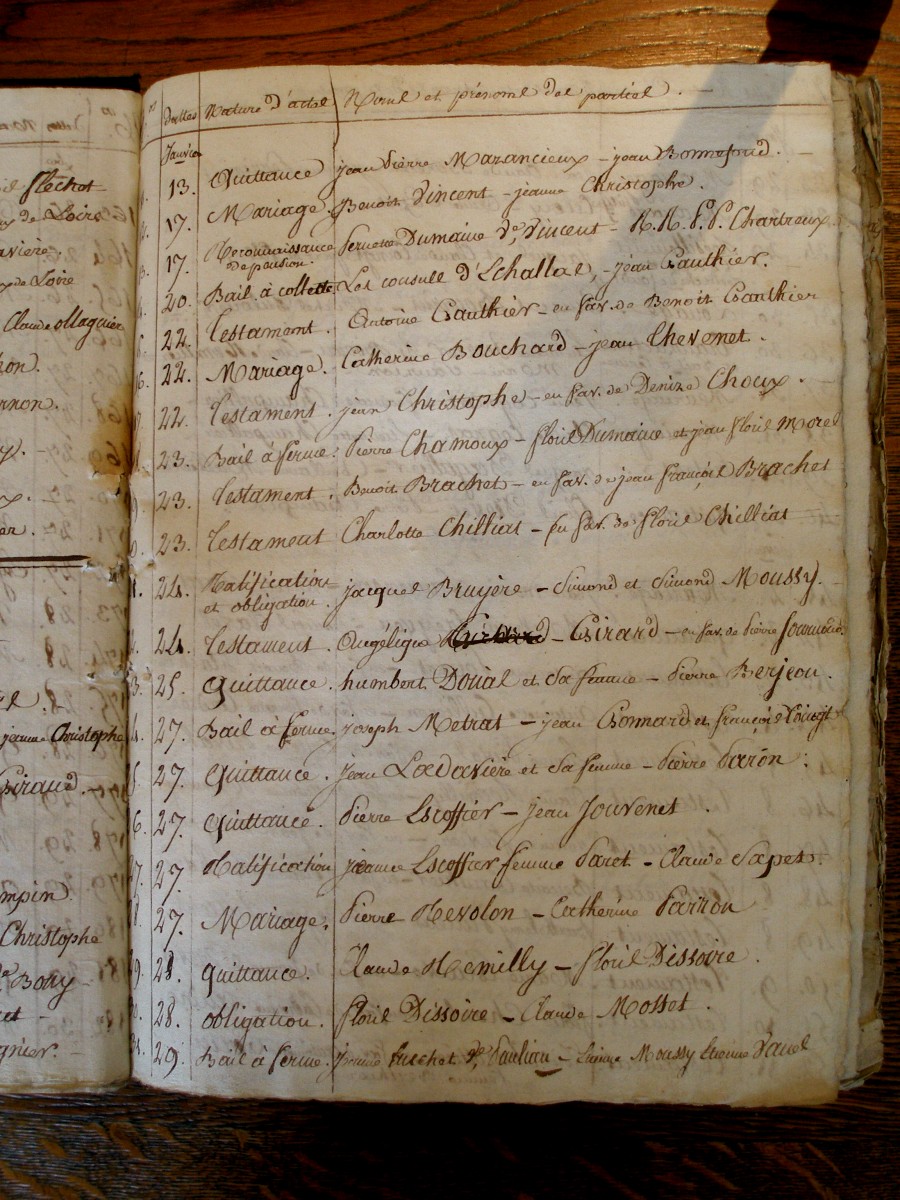 Dattes Nature d'actes Noms et prénoms des parties.
Janvier
13. Quittance jean Pierre Marancieux – jean Bonnefond.
17. Mariage. Benoit Vincent – jeanne Christophe.
17. Reconnaissance de pension. Pernette Dumaine Ve. Vincent – R.R. P.P. Chartreux.
20. Bail à collette Les consuls d'Echallas, – jean Gauthier.
22. Testament. Antoine Gauthier – en fav. de Benoit Gauthier
22. Mariage. Catherine Bouchard – jean Thevenet.
22. Testament. jean Christophe – en fav. de Denize Choux.
23. Bail à ferme. Pierre Chamoux – floris Dumaine et jean floris Morel
23. Testament. Benoit Brachet – en fav. de jean françois Brachet
23. Testament Charlotte Chilliat – en fav. de floris Chilliat
24. Ratification et obligation. jacques Bruyère – Simond et Simond Moussy.
24. Testament. Angélique Girard – en fav. de Pierre
25. Quittance. humbert Douat et sa femme – Pierre Berjeon.
27. Bail à ferme. joseph Metrat – jean Bonnard et françois
27. Quittance. jean Ladavière et sa femme – Pierre Paron.
27. Quittance. Pierre Escoffier – jean Jouvenet.
27. Ratification jeanne Escoffier femme Paret – Claude Sapet.
27. Mariage. Pierre Revolon – Catherine Parron
28. quittance. Claude Remilly – floris Dissoire.
28. obligation. floris Dissoire – Claude Mosset.
29. Bail à ferme. – Moussy Etienne
fléchet
de Loire
de Loire
Claude ollagnier
jeanne Christophe
Giraud.
Christophe